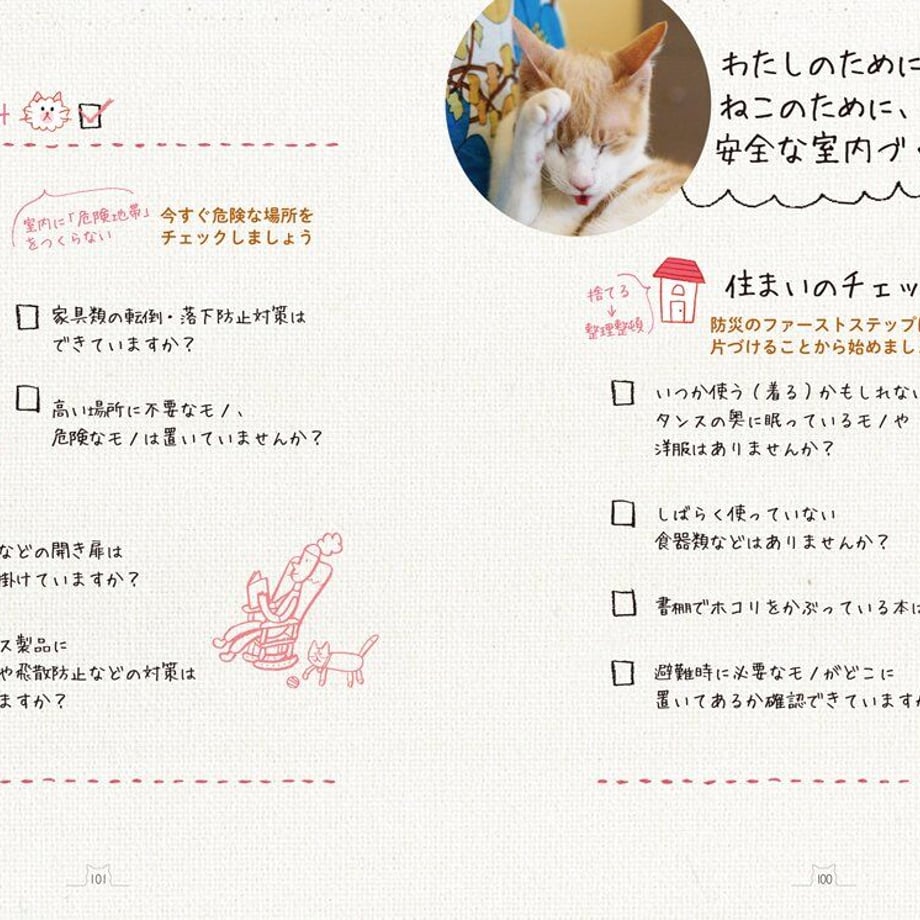 わたしのために
ねこのために、
安全な室内づ
住まいのチェッ
捨てる
↓
整理整頓
防災のファーストステップ
片づけることから始めまし
いつか使う(着る)かもしれない
タンスの奥に眠っているモノや
洋服はありませんか?
しばらく使っていない
食器類などはありませんか?
書棚でホコリをかぶっている本は
避難時に必要なモノがどこに
置いてあるか確認できていますか
100
室内に「危険地帯」
をつくらない
今すぐ危険な場所を
チェックしましょう
家具類の転倒・落下防止対策は
できていますか?
高い場所に不要なモノ、
危険なモノは置いていませんか?
などの開き扉は
掛けていますか?
ス製品に
や飛散防止などの対策は
ますか?
101